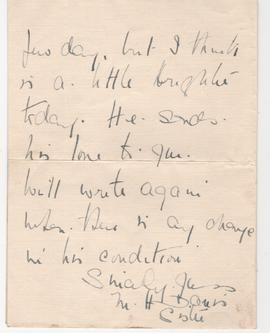 few day, but I think
is a little brighter
today. He sends
his love to you.
Will write again
when there is any change
in his condition
Sincerely yours
M. H. Davis
Sister